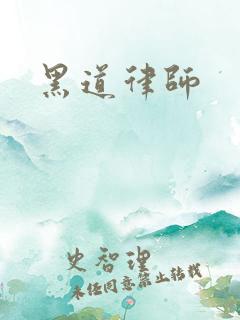 黑道律師
史智理
未经同意禁止转载